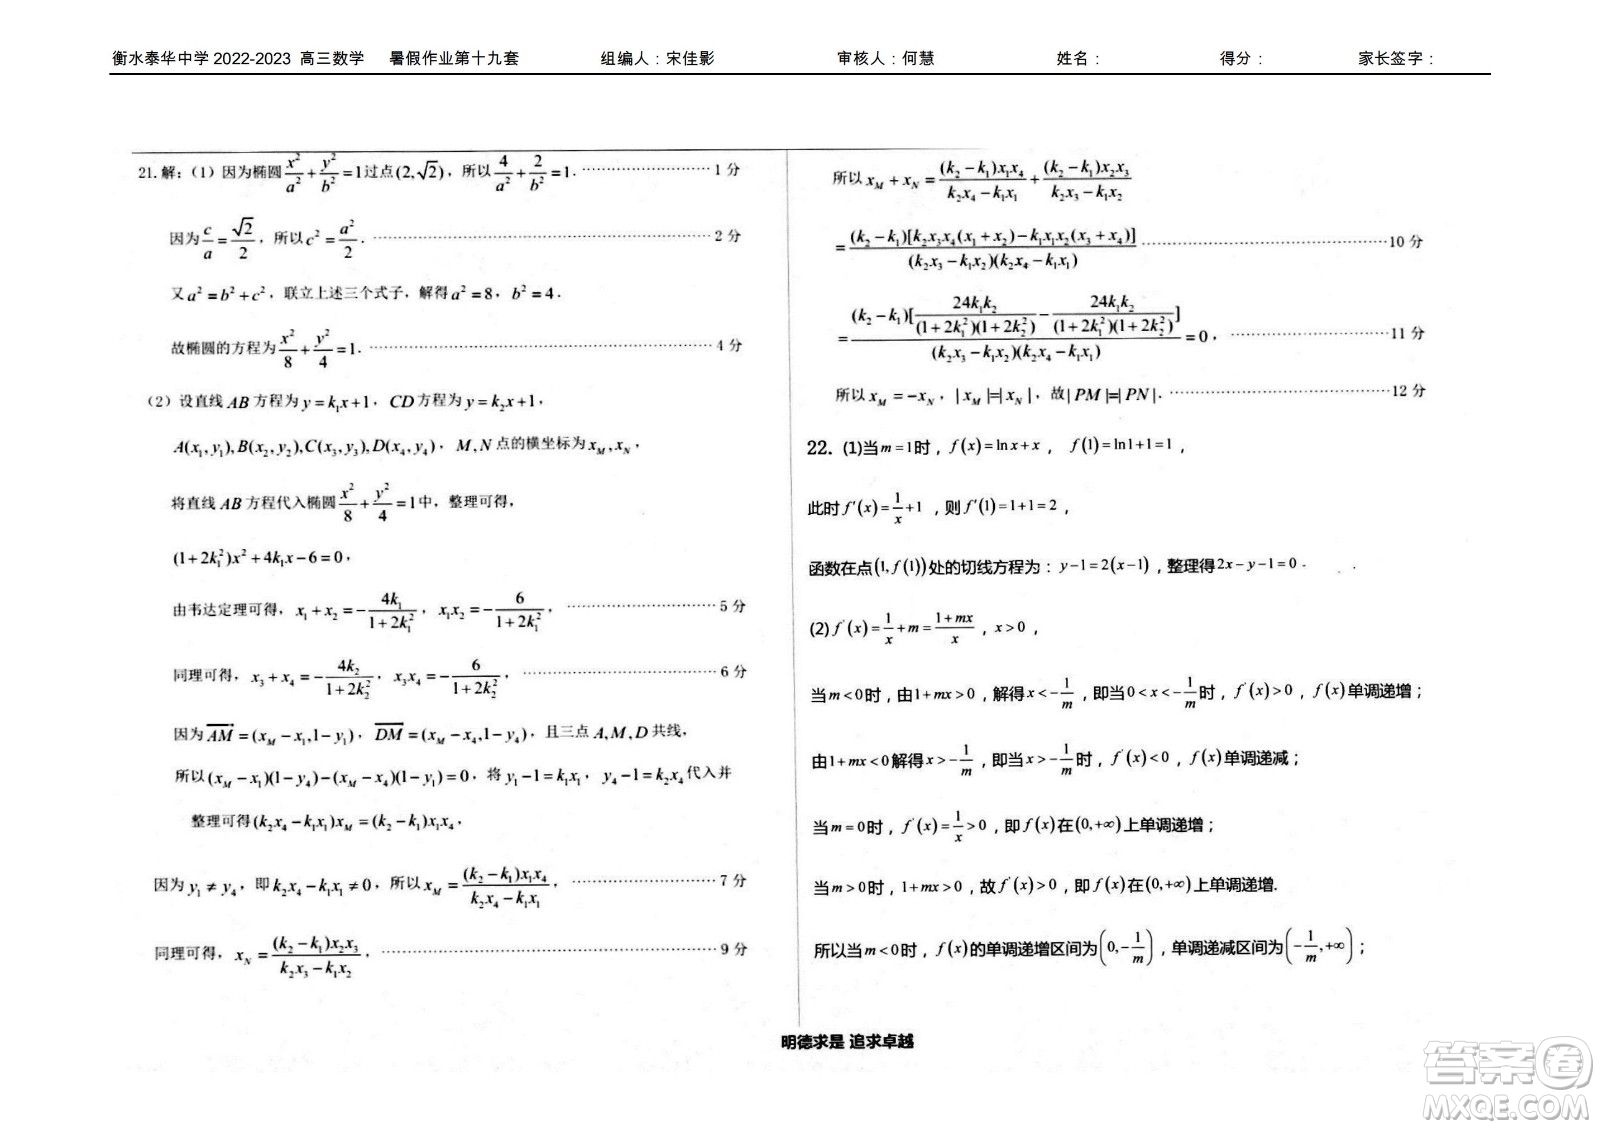 衡水泰华中学2022-2023 高三数学 暑假作业第十九套 组编人：宋佳影 审核人：何慧 姓名： 得分： 家长签字：
21.解：（1）因为椭圆 x²/a² + y²/b² = 1 过点(2,√2)，所以 4/a² + 2/b² = 1. ………………1 分
因为 c/a = √2/2，所以 c² = a²/2. ………………2 分
又 a² = b² + c²，联立上述三个式子，解得 a² = 8，b² = 4.
故椭圆的方程为 x²/8 + y²/4 = 1. ………………4 分
（2）设直线 AB 方程为 y = k₁x+1，CD 方程为 y = k₂x+1，
A(x₁,y₁),B(x₂,y₂),C(x₃,y₃),D(x₄,y₄)，M,N 点的横坐标为 x_M,x_N，
将直线 AB 方程代入椭圆 x²/8 + y²/4 = 1 中，整理可得，
(1+2k₁²)x² + 4k₁x − 6 = 0，
由韦达定理可得，x₁ + x₂ = −4k₁/(1+2k₁²)，x₁x₂ = −6/(1+2k₁²)，………………5 分
同理可得，x₃ + x₄ = −4k₂/(1+2k₂²)，x₃x₄ = −6/(1+2k₂²)，………………6 分
因为 AM = (x_M − x₁,1−y₁)，DM = (x_M − x₄,1−y₄)，且三点 A,M,D 共线，
所以(x_M − x₁)(1−y₄) − (x_M − x₄)(1−y₁) = 0，将 y₁ −1 = k₁x₁，y₄ −1 = k₂x₄ 代入并
整理可得(k₂x₄ − k₁x₁)x_M = (k₂ − k₁)x₁x₄，
因为 y₁ ≠ y₄，即 k₂x₄ − k₁x₁ ≠ 0，所以 x_M = (k₂ − k₁)x₁x₄/(k₂x₄ − k₁x₁)，………………7 分
同理可得，x_N = (k₂ − k₁)x₂x₃/(k₂x₃ − k₁x₂)，………………9 分
所以 x_M + x_N = (k₂ − k₁)x₁x₄/(k₂x₄ − k₁x₁) + (k₂ − k₁)x₂x₃/(k₂x₃ − k₁x₂)
= (k₂ − k₁)[k₂x₃x₄(x₁ + x₂) − k₁x₁x₂(x₃ + x₄)]/(k₂x₃ − k₁x₂)(k₂x₄ − k₁x₁) ………………10 分
= (k₂ − k₁)[24k₁k₂/(1+2k₁²)(1+2k₂²) − 24k₁k₂/(1+2k₁²)(1+2k₂²)]/(k₂x₃ − k₁x₂)(k₂x₄ − k₁x₁) = 0，………………11 分
所以 x_M = −x_N，|x_M|=|x_N|，故|PM|=|PN|. ………………12 分
22. (1)当 m = 1 时，f(x) = ln x + x，f(1) = ln1+1 = 1，
此时 f′(x) = 1/x + 1，则 f′(1) = 1+1 = 2，
函数在点(1,f(1))处的切线方程为：y−1 = 2(x−1)，整理得 2x − y −1 = 0.
(2) f′(x) = 1/x + m = (1+mx)/x，x > 0，
当 m < 0 时，由 1+mx > 0，解得 x < −1/m，即当 0 < x < −1/m 时，f′(x) > 0，f(x)单调递增；
由 1+mx < 0 解得 x > −1/m，即当 x > −1/m 时，f′(x) < 0，f(x)单调递减；
当 m = 0 时，f′(x) = 1/x > 0，即 f(x)在(0,+∞)上单调递增；
当 m > 0 时，1+mx > 0，故 f′(x) > 0，即 f(x)在(0,+∞)上单调递增.
所以当 m < 0 时，f(x)的单调递增区间为(0,−1/m)，单调递减区间为(−1/m,+∞)；
明德求是 追求卓越
答案圈
MXQE.COM